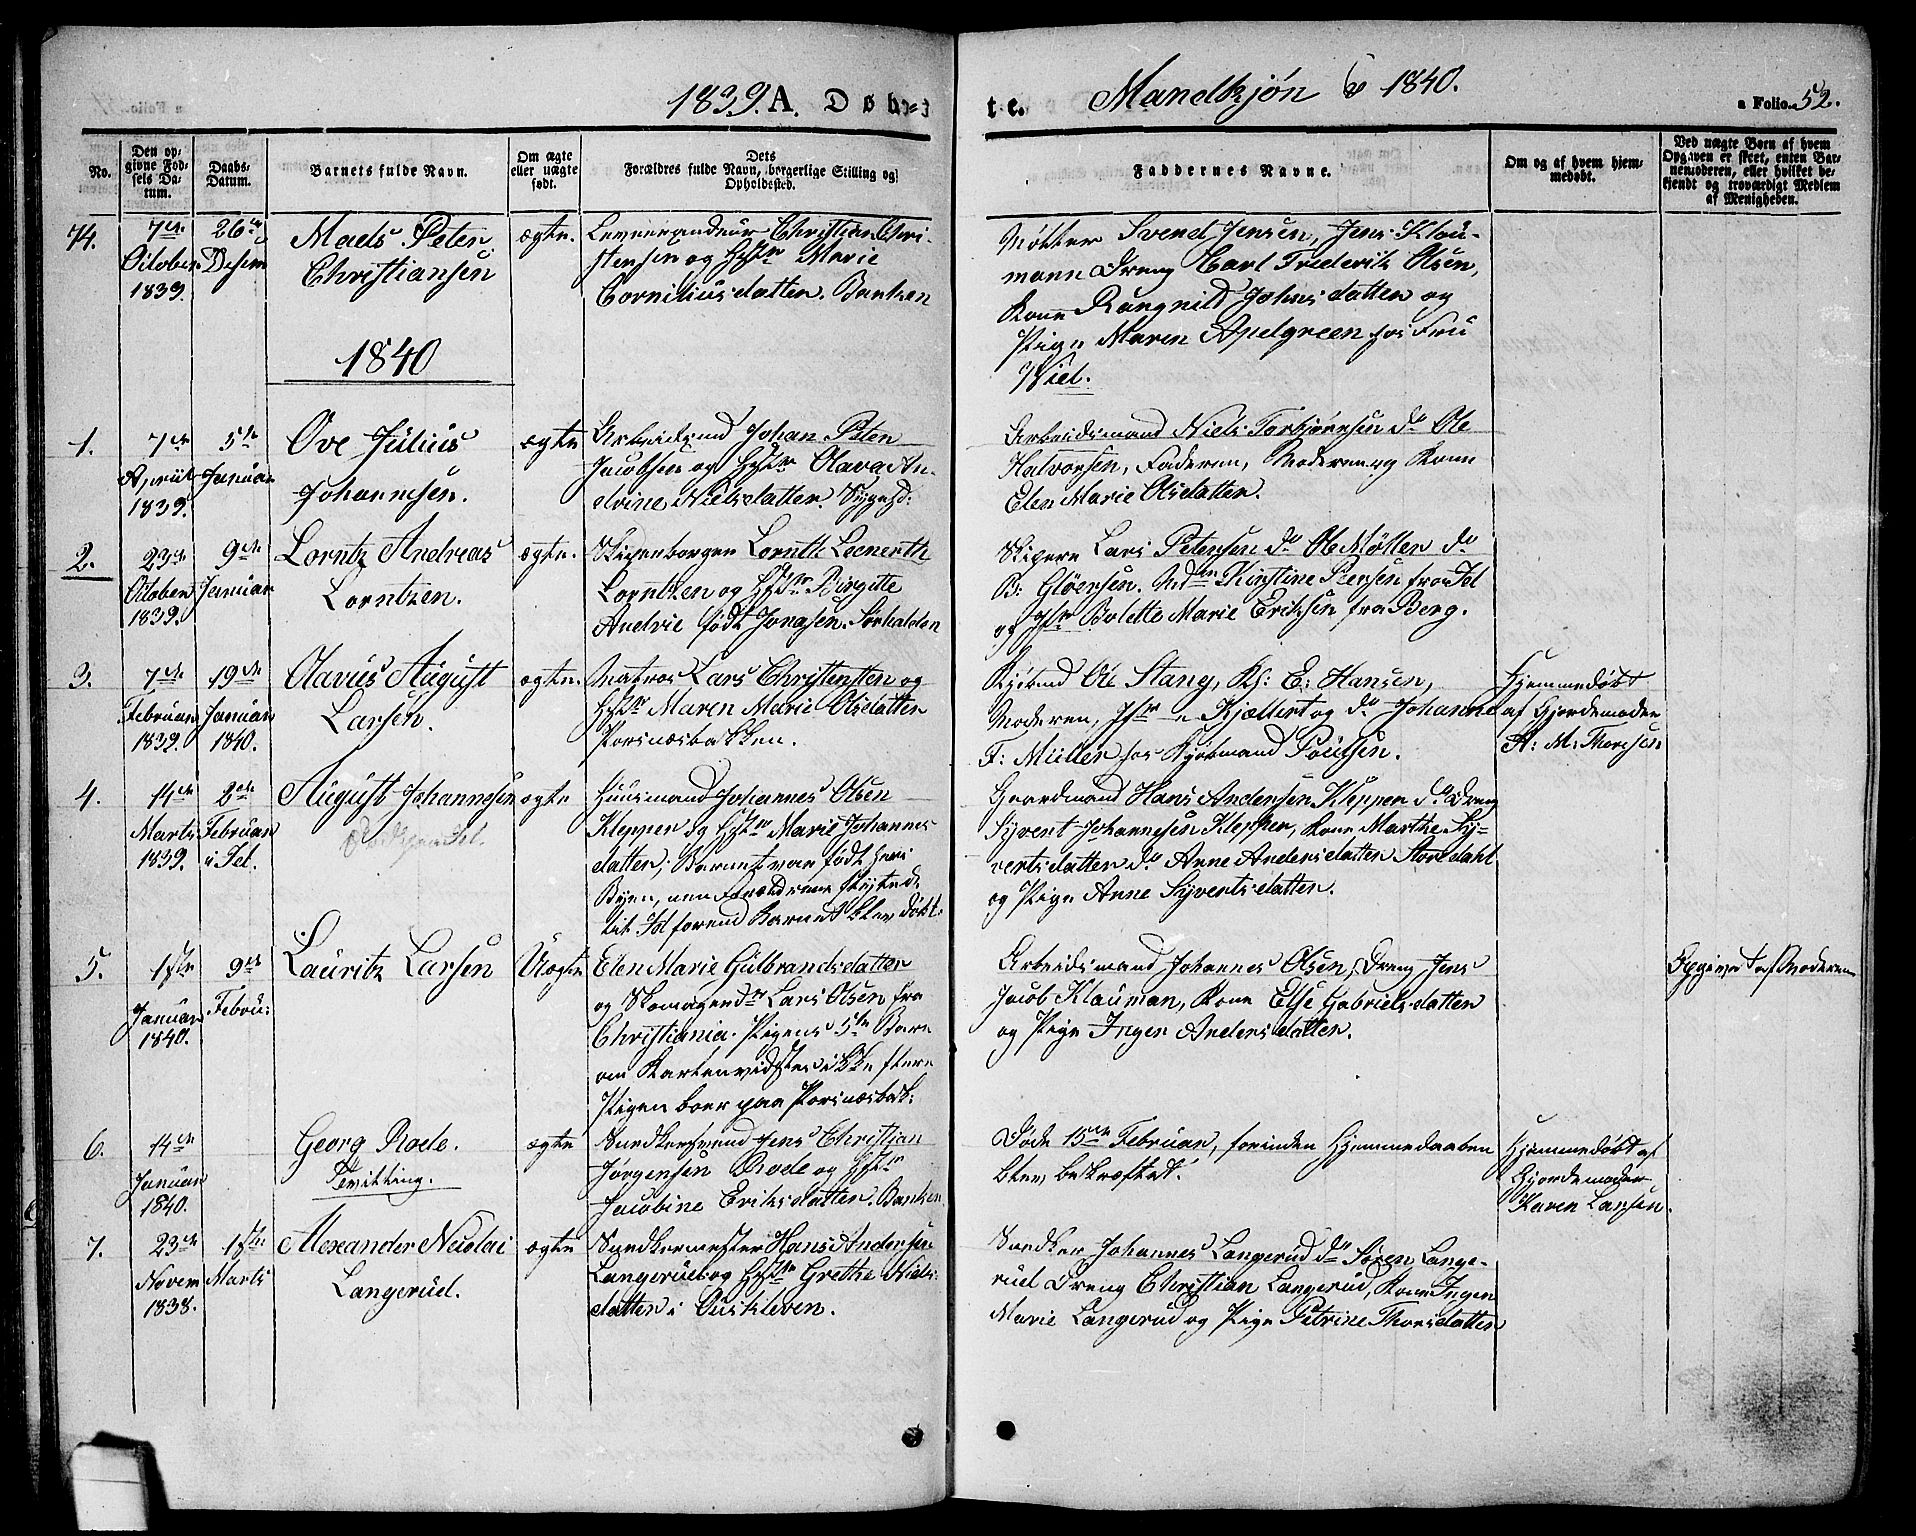 1839. A. Døb=
te. Mandkjøn & 1840. a Folio 52.
No.
Den op-
givne Fød-
sels Da-
tum.
Daabs-
Datum.
Barnets fulde Navn.
Om ægte
eller uægte
født.
Dets
Forældres fulde Navn, borgerlige Stilling og
Opholdssted.
Faddernes Navne.
Om og af hvem hjem-
medøbt.
Ved uægte Børn af hvem
Opgaven er skeet, enten Bar-
nemoderen, eller hvilket be-
kjendt og troværdigt Medlem
af Menigheden.
74.
7de
October
1839.
26de
Decem
Mads Peter
Christiansen
ægte.
Christian Chri-
stensen og Hstr Marie
Corniliusdatter. Banken
Svend Jensen, Jens Klau-
mann Dreng Carl Frederik Olsen,
Kone Rangnild Johnsdatter og
Pige Maren Apelgreen hos Fru
Wiel.
1840
1.
7de
April
1839.
5te
Januar
Ove Julius
Johannesen.
ægte
Arbeidsmd Johan Peter
Jacobsen og Hstr Olava An-
drine Nielsdatter.
Arbeidsmand Niels Torbjørnsen do Ole
Halvorsen, Faderen, Moderen og Kone
Elen Marie Olsdatter.
2.
23de
October
1839.
9de
Januar
Lorntz Andreas
Lorntzen.
ægte.
Skipperborger Lornth Leenerth
Lorntzen og Hstr Birgitte
Andvie født Jonasen. Sørhalden
Skipper Lars Petersen do Ole Møller do
B: Gløersen. Kirstine Peersen fra Id
og Jfr Bolette Marie Eriksen fra Berg.
3.
7de
Februar
1839.
19de
Januar
1840.
Olavus August
Larsen.
ægte.
Matros Lars Christensten og
Hstr Maren Marie Olsdatter
Porsnæsbakken.
Kjøbmd Ole Stang, Ks: E: Hansen,
Moderen, Jfr Kjøllert og do Johanne
F: Müller hos Kjøbmand Poulsen.
Hjemmedøbt
af Gjordemoder
A: M: Thoresen
4.
14de
Marts
1839.
2den
Februar
i Id.
August Johannesen
ægte
Huusmand Johannes Olsen
Klepper og Hstr Marie Johannes
datter; Barnet var født her i
Byen, men Forældrene flyttede
til Id forend Barnet blev døbt.
Gaardmand Hans Andersen Klepper do Dreng
Syvert Johannesen Klepper, Kone Marthe Sy-
vertsdatter do Anne Andersdatter Storedahl
og Pige Anne Syvertsdatter.
5.
1ste
Januar
1840.
9de
Febru:
Lauritz Larsen
Uægte
Elen Marie Gulbrandsdatter
og Skomagersv Lars Olsen fra
Christiania. Pigens 5te Barn
om Karlen vidstes ikke flere
Pigen boer paa Porsnæsbak:
Arbeidsmand Johannes Olsen, Dreng Jens
Jacob Klauman, Kone Else Gabrielsdatter
og Pige Inger Andersdatter.
Opgivet af Moderen
6.
14de
Januar
1840.
Georg Rode.
Tvilling.
ægte
Snedkersvend Jens Christian
Jørgensen Rode og Hstr
Jacobine Eriksdatter. Banken
Døde 15de Februar, forinden Hjemmedaaben
blev bekræftet.
Hjemmedøbt af
Gjordemoder
Karen Larsen.
7.
23de
Novem
1838.
1ste
Marts
Alexander Nicolai
Langerud.
ægte
Snedkermester Hans Andersen
Langerud og Hstr Grethe Niels-
datter i Oustkleven.
Snedker Johannes Langerud do Søren Lange-
rud Dreng Christian Langerud, Kone Inger
Marie Langerud og Pige Petrine Thorsdatter